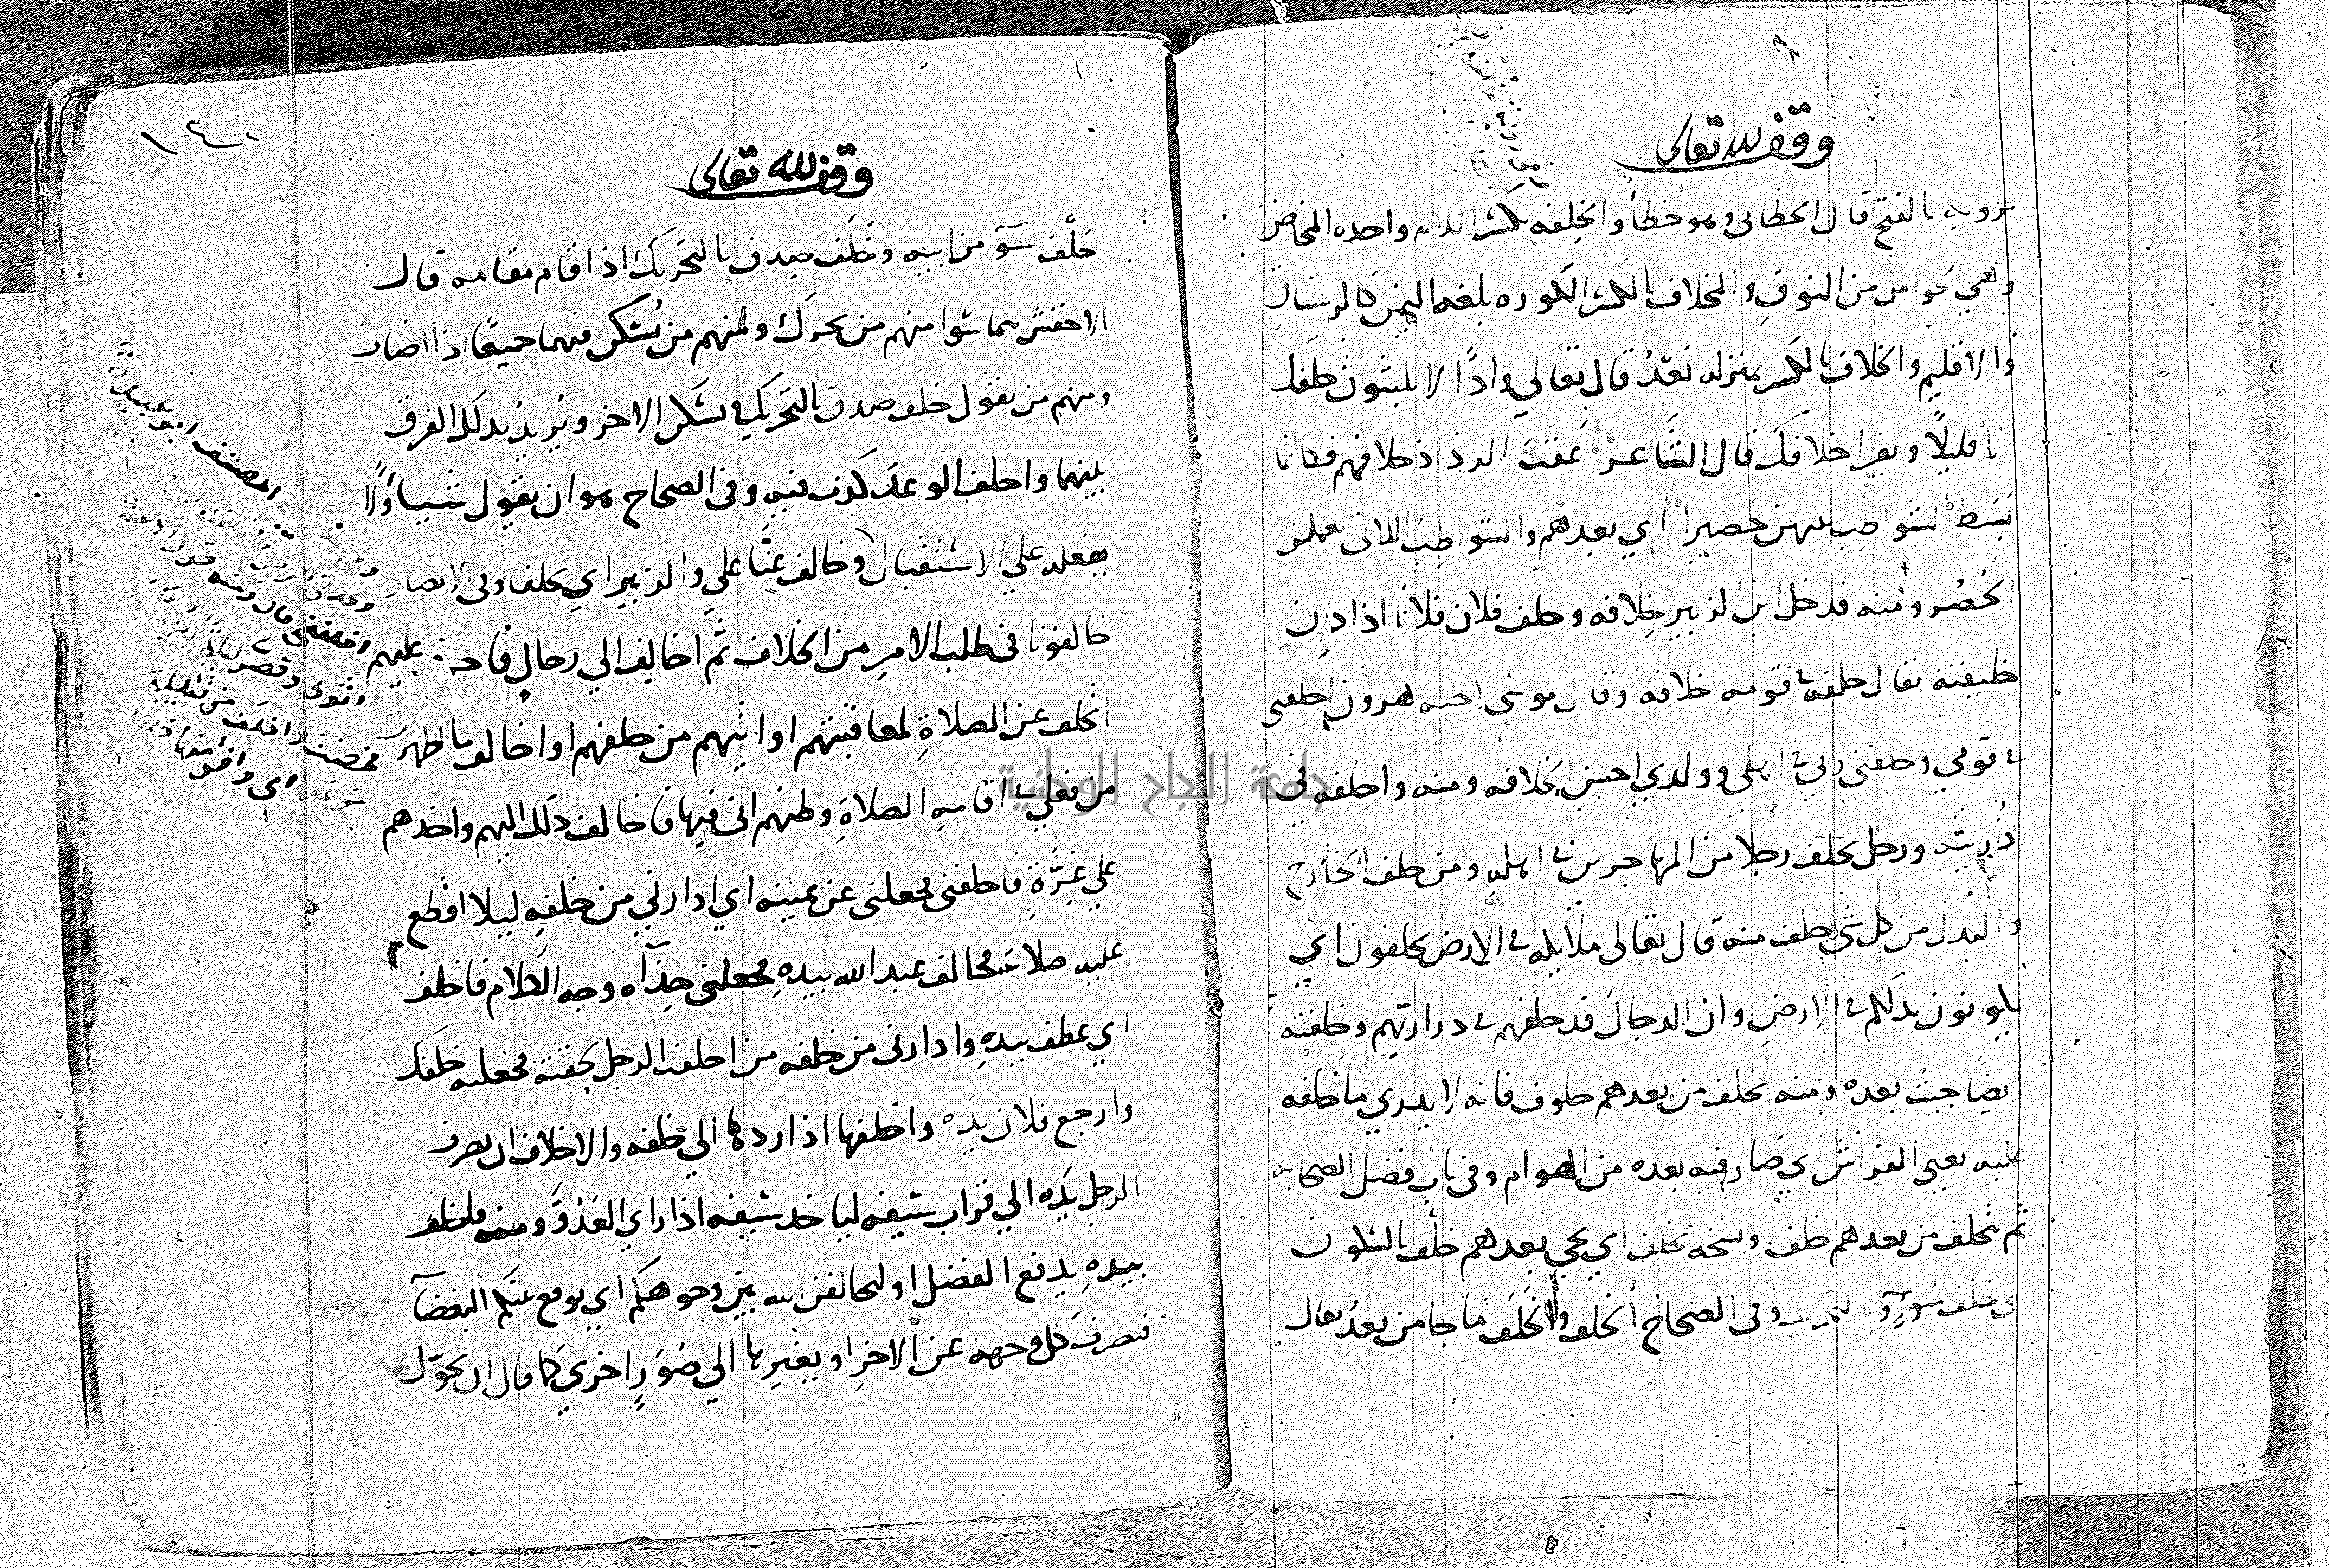 وقف لله تعالى
يرويه بالفتح قال الخطابي وهو خطأ والخلفه بكسر اللام واحده المخاض
وهي الحوامل من النوق والمخلاف بالكسر الكوره بلغه اليمن كالرستاق
والاقليم والخلاف بالكسر بمنزله بعد قال تعالي واذا لا يلبثون خلفك
الا قليلا ويقرا خلافك قال الشاعر عفت الديار خلافهم فكانما
بسط الشواطب بينهن حصيرا اي بعدهم والشواطب اللاتي يعملن
الحصر ومنه فدخل ابن الزبير خلافه وخلف فلان فلانا اذا كان
خليفته يقال خلفه في قومه خلافه وقال موسى لاخيه هرون اخلفني
في قومي وخلفني في اهلي وولدي احسن الخلافه ومنه واخلفه في
ذريته ورجل يخلف رجلا من المهاجرين في اهله ومن خلف الخارج
والبدل من كل شي خلف منه قال تعالى ملايكه في الارض يخلفون اي
يكونون بدلكم في الارض وان الدجال قد خلفهم في ذراريهم وخلفته
ايضا جيت بعده ومنه تخلف من بعدهم خلوف فانه لا يدري ما خلفه
عليه يعني الفراش اي صار فيه بعده من الهوام وفي باب فضل الصحابه
ثم تخلف من بعدهم خلف ونسخه يخلف اي يجي بعدهم خلف بالسكون
خلف سوء وفي الصحاح الخلف والخلف ما جا من بعد يقال
١٤٠
وقف لله تعالى
خلف سوء من ابيه وخلف صدق بالتحريك اذا قام مقامه قال
الاخفش هما سوا منهم من يحرك ومنهم من يسكن فيهما جميعا اذا اضاف
ومنهم من يقول خلف صدق بالتحريك ويسكن الاخر ويريد بذلك الفرق
بينهما واخلف الوعد كذب فيه وفي الصحاح هو ان يقول شيا ولا
يفعله علي الاستقبال وخالف عنا علي والزبير اي تخلفا وفي الانصار
خالفونا في طلب الامر من الخلاف ثم اخالف الي رجال فاحرق عليهم
اتخلف عن الصلاة لمعاقبتهم او اتيهم من خلفهم او اخالف ما اظهرت
من فعلي في اقامه الصلاة وظنهم اني فيها فاخالف ذلك اليهم واخذهم
علي غرة فاخلفني فجعلني عن يمينه اي ادارني من خلفه ليلا اقطع
عليه صلاته فخالف عبد الله بيده فجعلني حذاه وجه الكلام فاخلف
اي عطف بيده وادارني من خلفه من اخلف الرجل بحقنته فجعله خلفك
وارجع فلان يده واخلفها اذا ردها الي خلفه والاخلاف ان يصرف
الرجل يده الي قراب سيفه لياخذ سيفه اذا راي العدو ومنه فاخلف
بيده يدفع الفضل او ليخالفن الله بين وجوهكم اي يوقع بينكم البغضا
فيصرف كل وجهه عن الاخر او يغيرها الي صور اخري كما قال ان يحول
المصنف ابو عبيدة